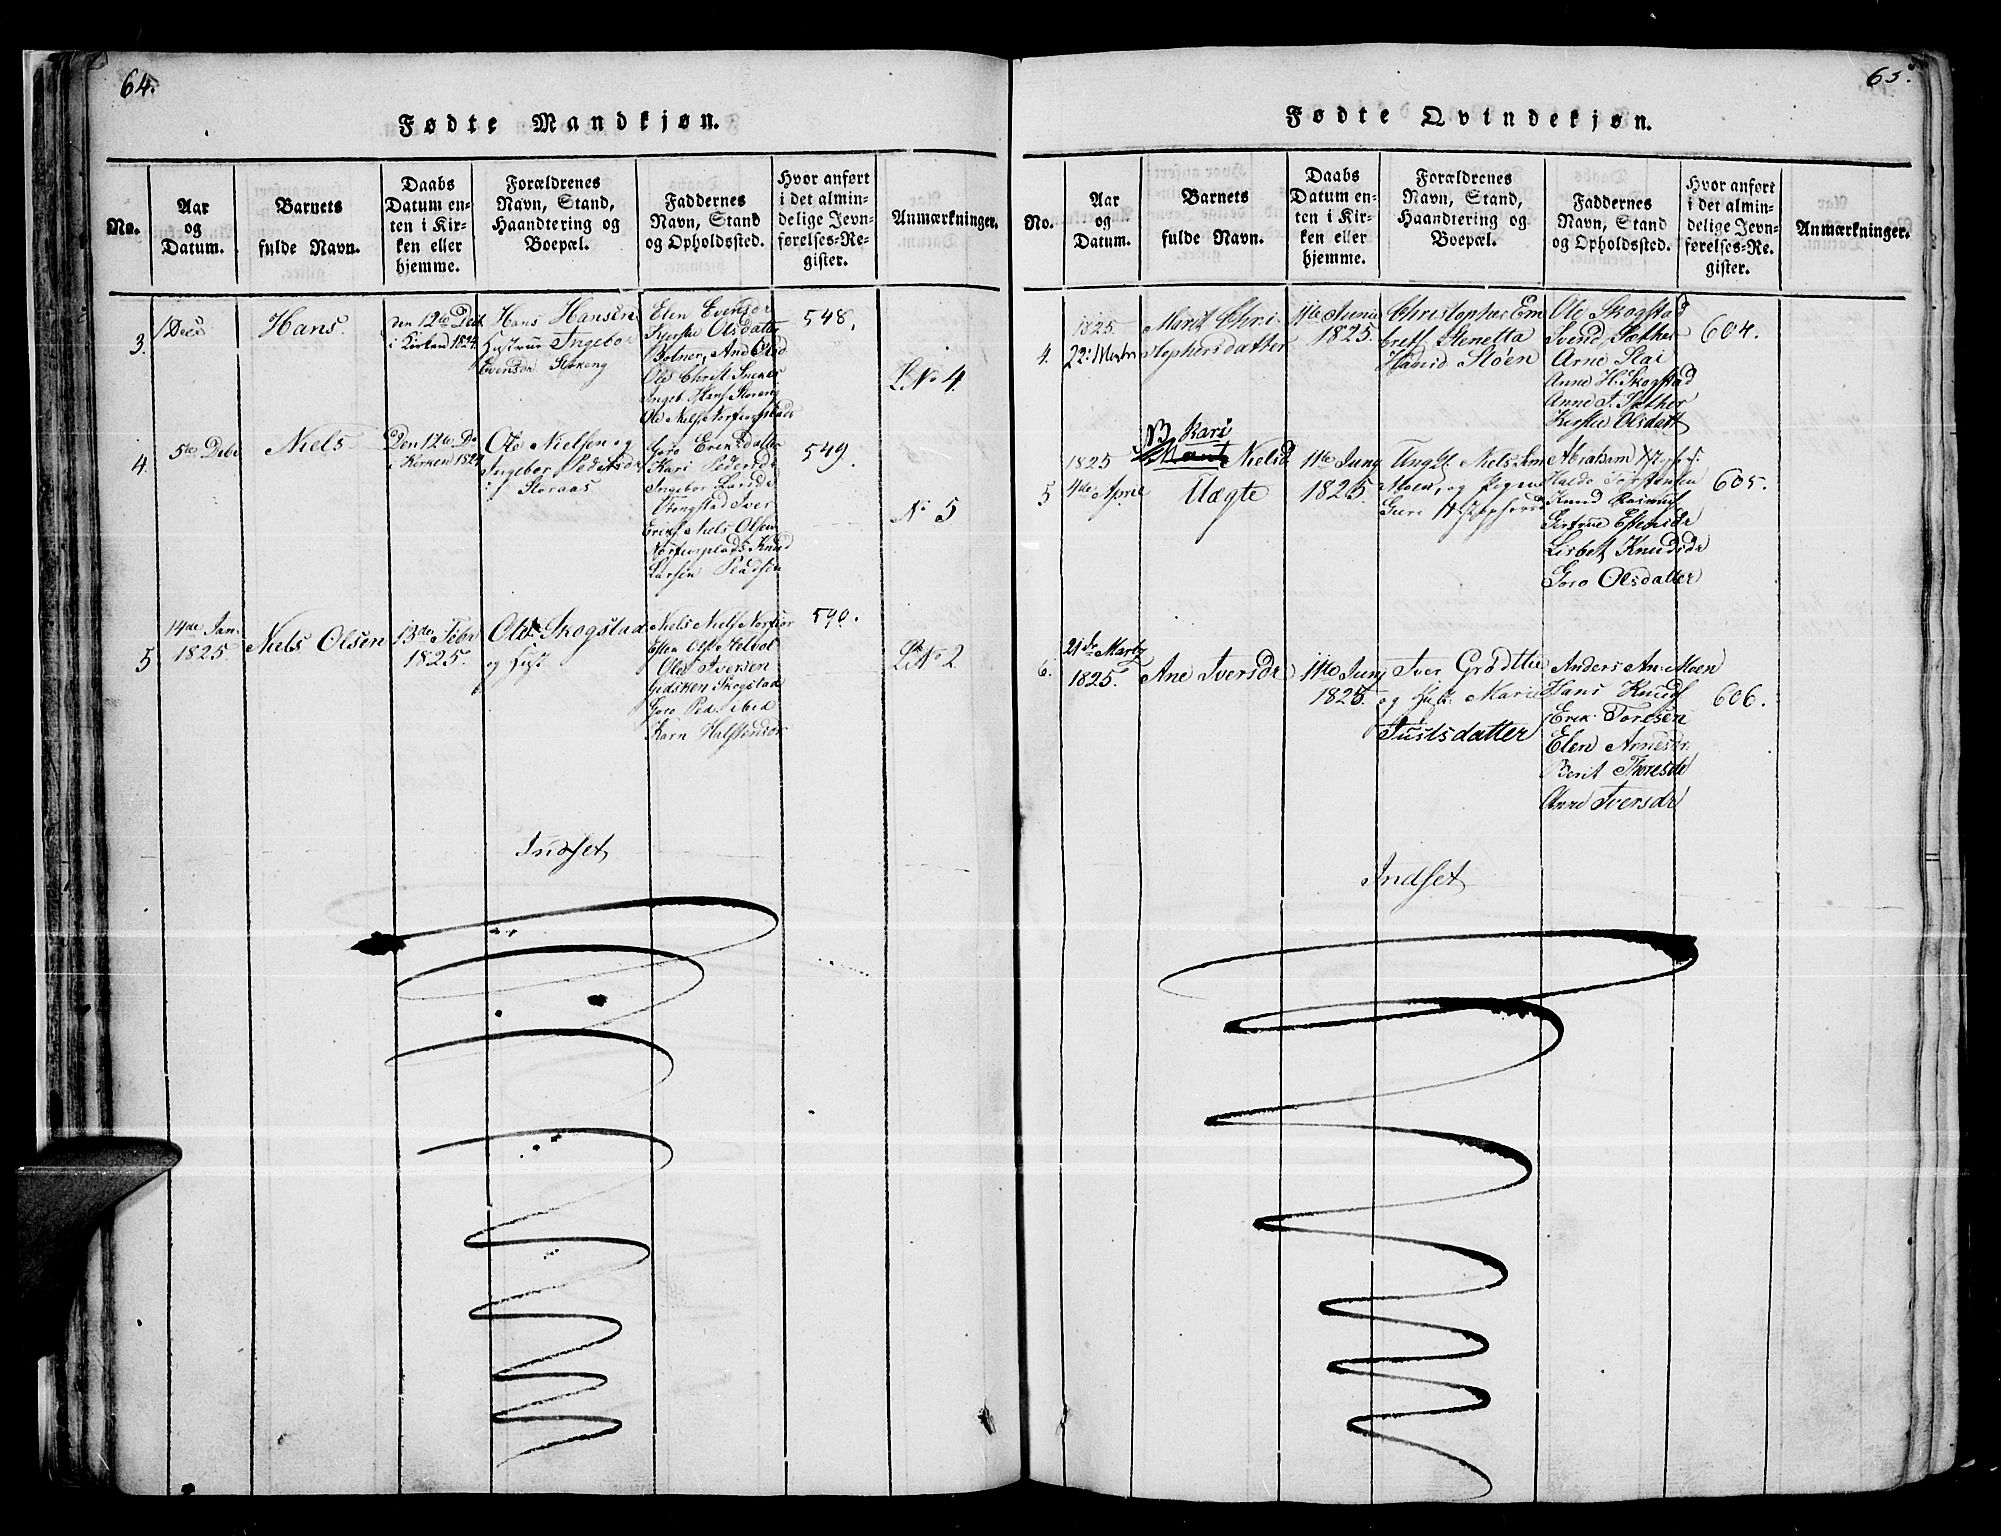 64.
Fødte Mandkjøn.
No.
Aar
og
Datum.
Barnets
fulde Navn.
Daabs
Datum en-
ten i Kir-
ken eller
hjemme.
Forældrenes
Navn, Stand,
Haandtering og
Boepæl.
Faddernes
Navn, Stand
og Opholdssted.
Hvor anført
i det almin-
delige Jevn-
førelses-Re-
gister.
Anmærkninger.
3.
Hans.
den 12te Dec
i Kirken 1824
Hans Hansen
Hustrue Ingebor
Evensdr Storeng
Elen Evensdr
Kjersti Olsdatter
Ole Christ
Ingeb. Hans Storeng
Ole Niels
548.
L No 4
4.
5te Debr
Niels
Den 12te De
i Kirken 1824
Ole Nielsen og
Ingebor Pedersdr
Storaas
Goro Eriksdatter
Kari Pedersdr
Ingebor Larsdr
Iver
Eriks. Niels Olsen
Knud
Larsen
549.
No 5
5
14de Jan.
1825.
Niels Olsen
13de Febr
1825.
Ole Skogstad
og
Niels Niels
Esten Ols
Ole Iversen
Gidsken Skogstad
Goro Ped. ibid
Karn Halstensdr
590.
L No 2
Indset
65.
Fødte Qvindekjøn.
No.
Aar
og
Datum.
Barnets
fulde Navn.
Daabs
Datum en-
ten i Kir-
ken eller
hjemme.
Forældrenes
Navn, Stand,
Haandtering og
Boepæl.
Faddernes
Navn, Stand
og Opholdssted.
Hvor anført
i det almin-
delige Jevn-
førelses-Re-
gister.
Anmærkninger.
4.
1825
22:
Marit Chri-
stophersdatter
11te Junii
1825.
Christopher Em
bretf. Stenetta
Støen
Ole Skogstad
Svend Sæther
Arne Slai
Anne H. Skogstad
Anne J. Sæther
Kirstie Olsdatt
604.
5
1825
4de April
NB Kari
Marit Nielsd
Uægte
11te Juny
1825.
Ungk. Niels Sim
Moen, og Pigen
Guri
Abraham
Haldo Torstensen
Knud Rasmus
Gertrue Estensdr
Lisbet Knudsdr
Goro Olsdatter
605.
6.
21de Marty
1825.
Ane Iversdr
11te Juny
1825.
Iver Grødttie
og Hust. Mari
Justsdatter
Anders An. Moen
Hans Knuds
Erik Toresen
Elen Arnesdr
Berit Thoresdr
Anne Iversdr
606.
Indset